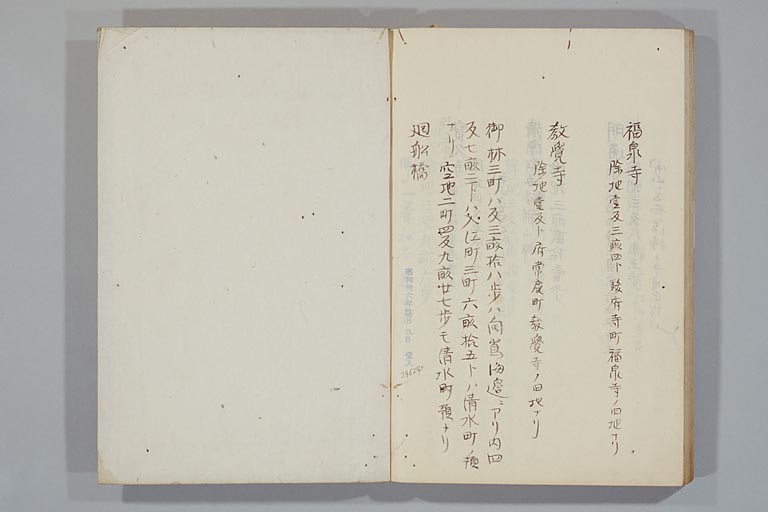 福泉寺
除地壹反三畝四卜駿府寺町福泉寺ノ旧地ナリ
教覺寺
除地壹反卜府常慶町教覺寺ノ旧地ナリ
御林三町八反三畝拾八歩ハ向嶌海邉ニアリ内四
反七畝二卜ハ入江町三町六畝拾五卜ハ清水町ノ預
ナリ空地二町四反九畝廿七歩モ清水町預ナリ
廻舩橋